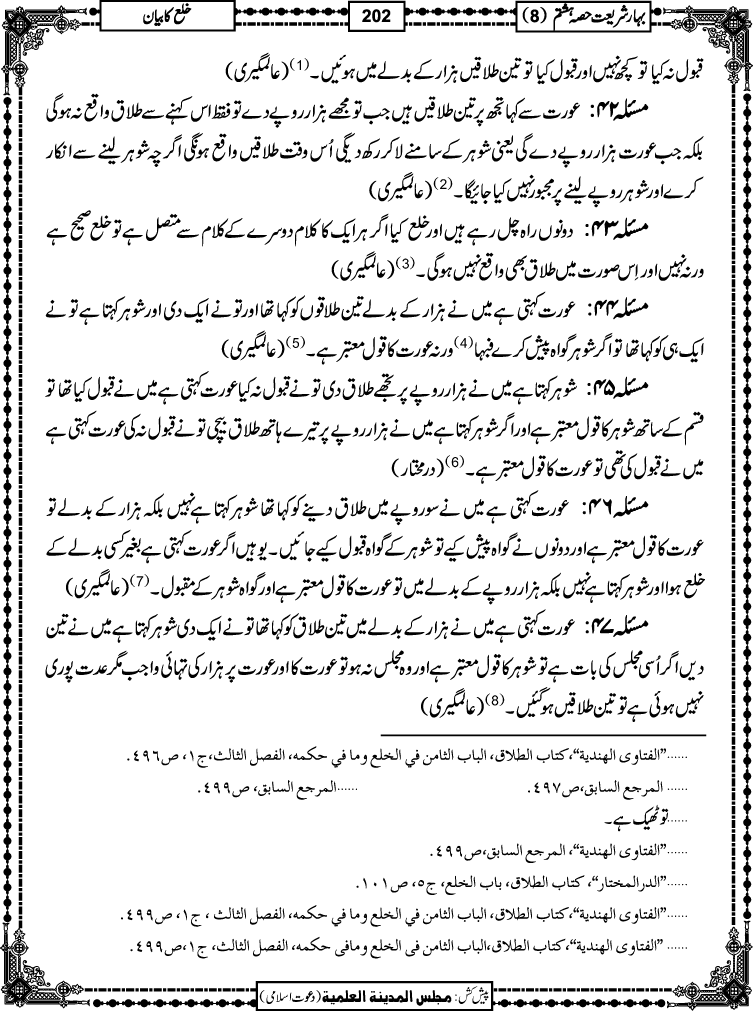 بہار شریعت حصہ ہشتم (8)
202
خلع کا بیان
قبول نہ کیا تو کچھ نہیں اور قبول کیا تو تین طلاقیں ہزار کے بدلے میں ہوئیں۔(1) (عالمگیری)
مسئلہ ۴۲: عورت سے کہا تجھ پر تین طلاقیں ہیں جب تو مجھے ہزار روپے دے تو فقط اس کہنے سے طلاق واقع نہ ہوگی
بلکہ جب عورت ہزار روپے دے گی یعنی شوہر کے سامنے لا کر رکھ دیگی اُس وقت طلاقیں واقع ہونگی اگرچہ شوہر لینے سے انکار
کرے اور شوہر روپے لینے پر مجبور نہیں کیا جائیگا۔(2) (عالمگیری)
مسئلہ ۴۳: دونوں راہ چل رہے ہیں اور خلع کیا اگر ہر ایک کا کلام دوسرے کے کلام سے متصل ہے تو خلع صحیح ہے
ورنہ نہیں اور اِس صورت میں طلاق بھی واقع نہیں ہوگی۔(3) (عالمگیری)
مسئلہ ۴۴: عورت کہتی ہے میں نے ہزار کے بدلے تین طلاقوں کو کہا تھا اور تو نے ایک دی اور شوہر کہتا ہے تو نے
ایک ہی کو کہا تھا تو اگر شوہر گواہ پیش کرے فبہا(4) ورنہ عورت کا قول معتبر ہے۔(5) (عالمگیری)
مسئلہ ۴۵: شوہر کہتا ہے میں نے ہزار روپے پر تجھے طلاق دی تو نے قبول نہ کیا عورت کہتی ہے میں نے قبول کیا تھا تو
قسم کے ساتھ شوہر کا قول معتبر ہے اور اگر شوہر کہتا ہے میں نے ہزار روپے پر تیرے ہاتھ طلاق بیچی تو نے قبول نہ کی عورت کہتی ہے
میں نے قبول کی تھی تو عورت کا قول معتبر ہے۔(6) (درمختار)
مسئلہ ۴۶: عورت کہتی ہے میں نے سو روپے میں طلاق دینے کو کہا تھا شوہر کہتا ہے نہیں بلکہ ہزار کے بدلے تو
عورت کا قول معتبر ہے اور دونوں نے گواہ پیش کیے تو شوہر کے گواہ قبول کیے جائیں۔ یوہیں اگر عورت کہتی ہے بغیر کسی بدلے کے
خلع ہوا اور شوہر کہتا ہے نہیں بلکہ ہزار روپے کے بدلے میں تو عورت کا قول معتبر ہے اور گواہ شوہر کے مقبول۔(7) (عالمگیری)
مسئلہ ۴۷: عورت کہتی ہے میں نے ہزار کے بدلے میں تین طلاق کو کہا تھا تو نے ایک دی شوہر کہتا ہے میں نے تین
دیں اگر اُسی مجلس کی بات ہے تو شوہر کا قول معتبر ہے اور وہ مجلس نہ ہو تو عورت کا اور عورت پر ہزار کی تہائی واجب مگر عدت پوری
نہیں ہوئی ہے تو تین طلاقیں ہوگئیں۔(8) (عالمگیری)
......”الفتاوی الھندیة“،کتاب الطلاق، الباب الثامن في الخلع وما في حکمه، الفصل الثالث،ج۱، ص۴۹۶.
...... المرجع السابق،ص۴۹۷. ......المرجع السابق، ص۴۹۹.
......تو ٹھیک ہے۔
......”الفتاوی الھندیة“، المرجع السابق،ص۴۹۹.
......”الدرالمختار“، کتاب الطلاق، باب الخلع، ج۵، ص۱۰۱.
......”الفتاوی الھندیة“،کتاب الطلاق، الباب الثامن في الخلع وما في حکمه، الفصل الثالث ، ج۱، ص۴۹۹.
...... ”الفتاوی الھندیة“،کتاب الطلاق،الباب الثامن فی الخلع ومافی حکمه، الفصل الثالث، ج۱،ص۴۹۹.
پیش کش: مجلس المدینة العلمیة (دعوت اسلامی)